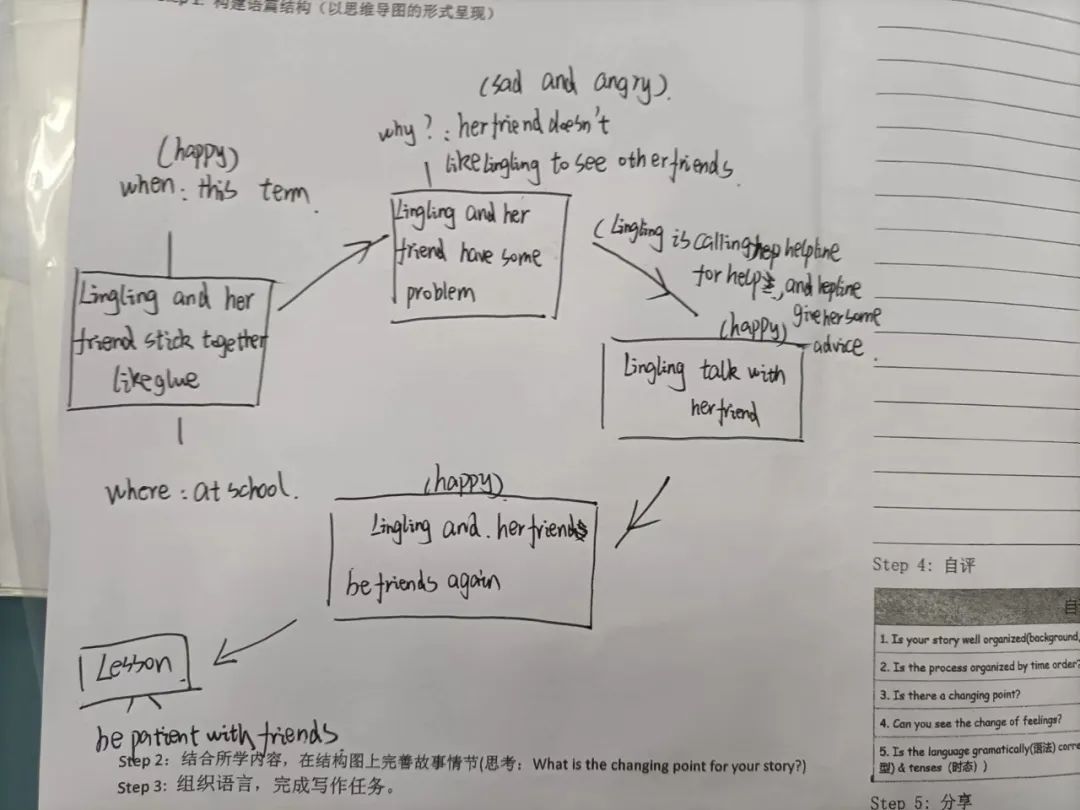 构建语篇结构（以思维导图的形式呈现）
(happy)
when: this term.
Lingling and her
friend stick together
like glue
where: at school.
(sad and angry).
why?: her friend doesn't
like lingling to see other friends.
Lingling and her
friend have some
problem
(Lingling is calling helpline
for help, and hepline
give her some
advice.
(happy)
Lingling talk with
her friend
(happy)
Lingling and her friend
be friends again
Lesson.
be patient with friends
Step 2: 结合所学内容，在结构图上完善故事情节(思考: What is the changing point for your story?)
Step 3: 组织语言，完成写作任务。
Step 4: 自评
自
1. Is your story well organized(background,
2. Is the process organized by time order?
3. Is there a changing point?
4. Can you see the change of feelings?
5. Is the language gramatically(语法) corre
型) & tenses (时态) )
Step 5: 分享